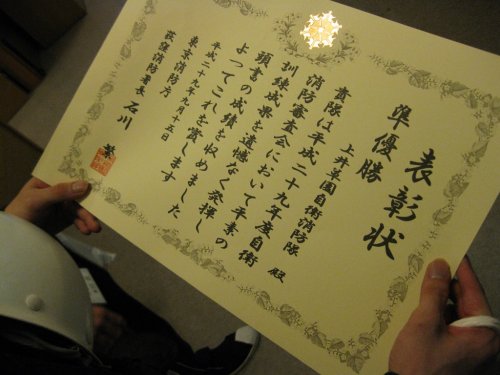 表彰状
準優勝
上井草園自衛消防隊 殿
貴隊は平成二十九年度自衛
消防審査会において平素の
訓練成果を遺憾なく発揮し
頭書の成績を収めました
よってこれを賞します
平成二十九年九月十五日
東京消防庁
荻窪消防署長 石川